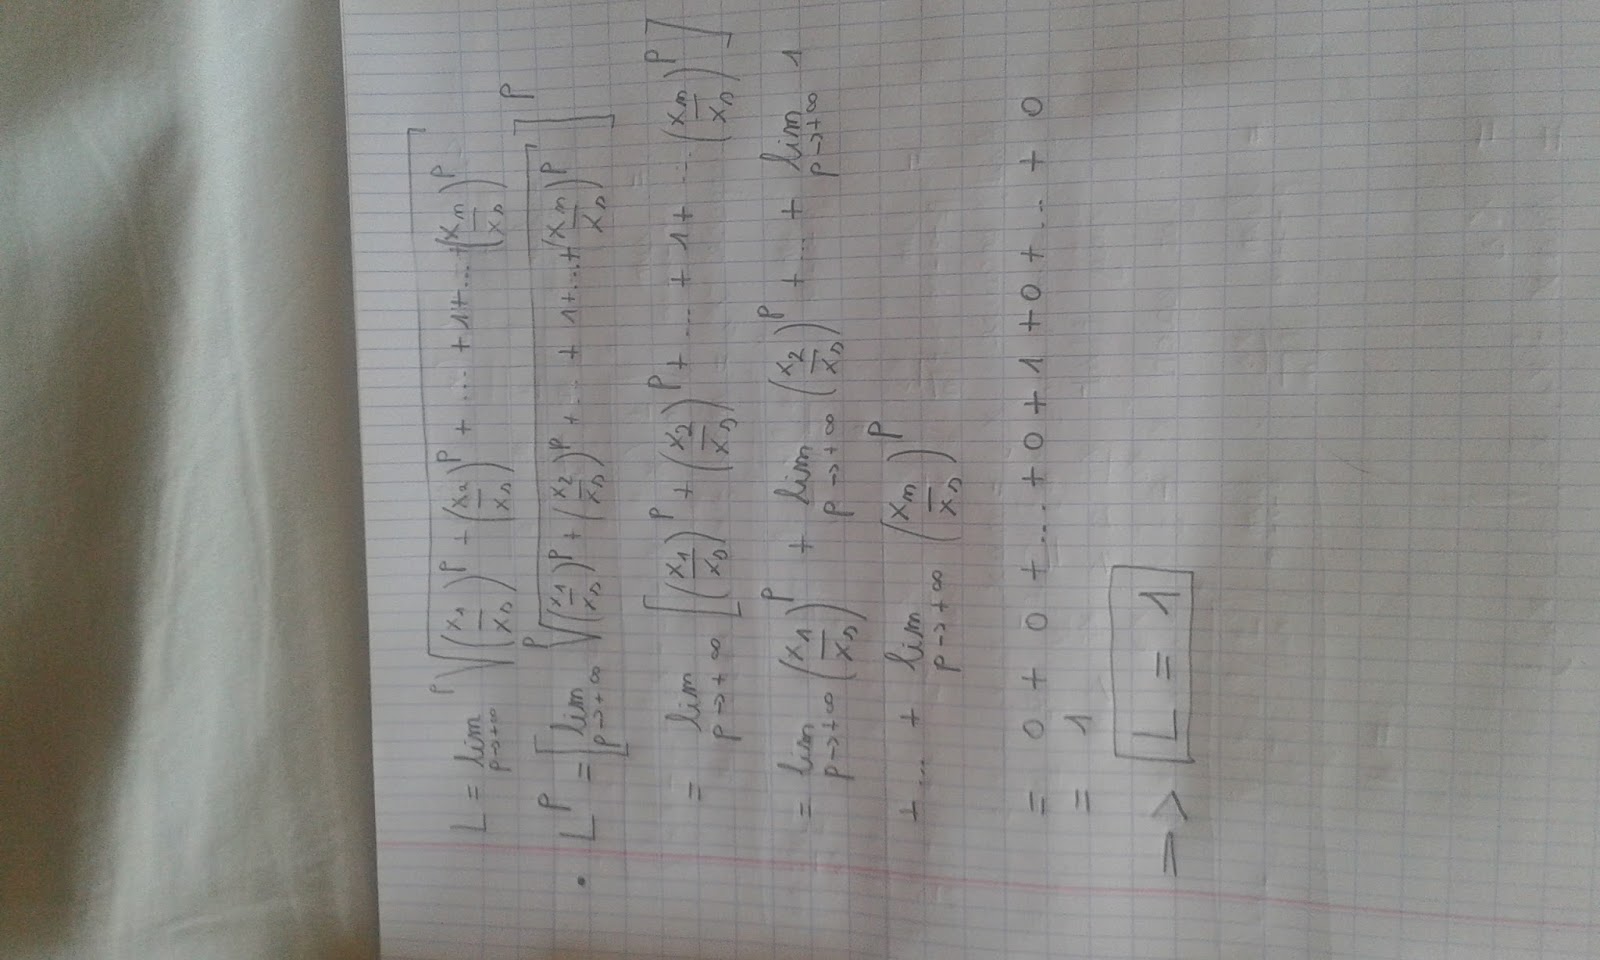 L = lim p→+∞ ᵖ√((x₁/xₛ)ᵖ + (x₂/xₛ)ᵖ + ... + 1 + ... + (xₙ/xₛ)ᵖ)
• Lᵖ = [lim p→+∞ ᵖ√((x₁/xₛ)ᵖ + (x₂/xₛ)ᵖ + ... + 1 + ... + (xₙ/xₛ)ᵖ)]ᵖ
= lim p→+∞ [(x₁/xₛ)ᵖ + (x₂/xₛ)ᵖ + ... + 1 + ... (xₙ/xₛ)ᵖ]
= lim p→+∞ (x₁/xₛ)ᵖ + lim p→+∞ (x₂/xₛ)ᵖ + ... + lim p→+∞ 1
+ ... + lim p→+∞ (xₙ/xₛ)ᵖ
= 0 + 0 + ... + 0 + 1 + 0 + ... + 0
= 1
=> L = 1